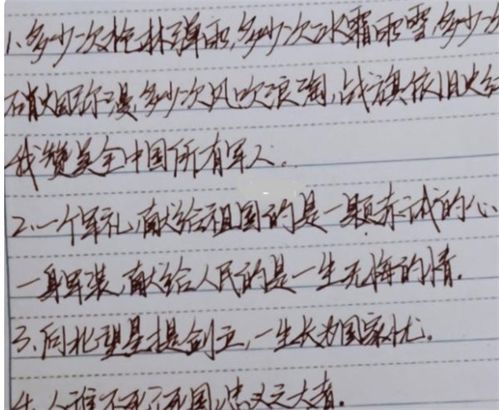 1、多少次枪林弹雨,多少次冰霜雨雪,多少次
硝烟弥漫,多少次风吹浪淘,战旗依旧火红
我赞美全中国所有军人。
2、一个军礼,献给祖国的是一颗赤诚的心
一身军装,献给人民的是一生无悔的情.
3、向北望星提剑立,一生长为国家忧。
4、人谁不死,死国,忠义之大者.